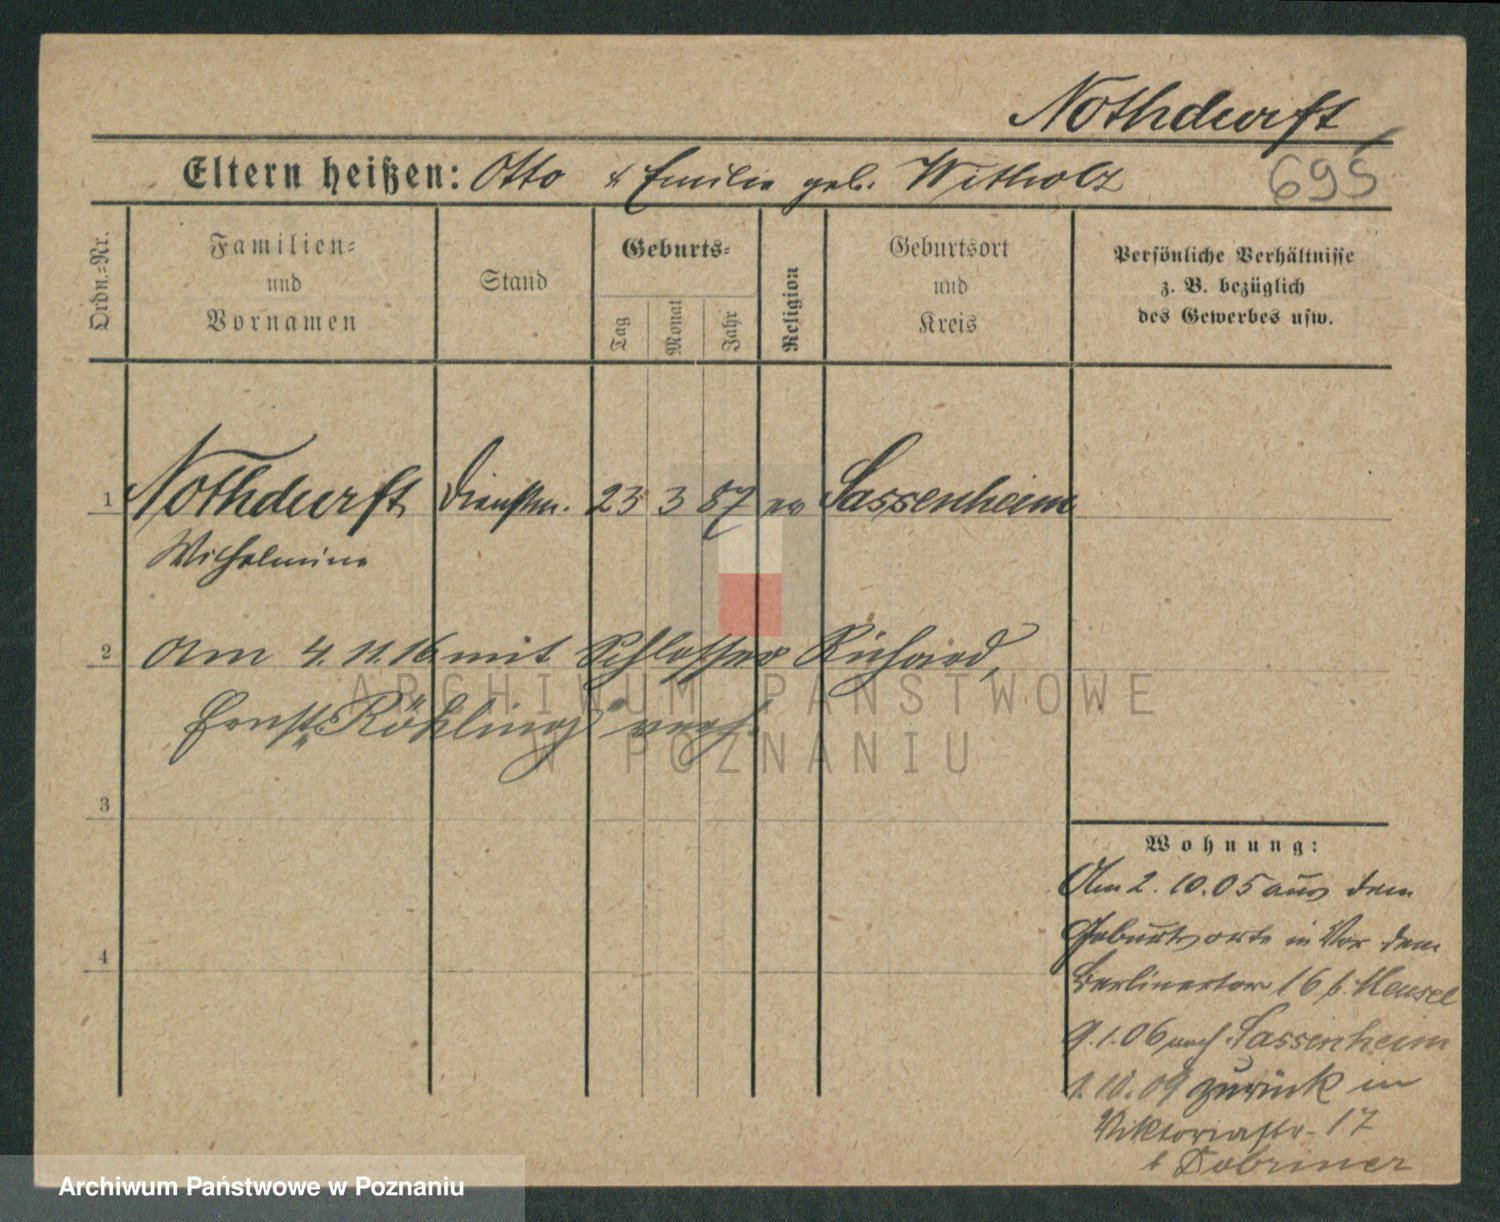 Nothdurft
695
Eltern heißen: Otto & Emilie geb. Witholz
Ordn.-Nr.
Familien-
und
Vornamen
Stand
Geburts-
Tag
Monat
Jahr
Religion
Geburtsort
und
Kreis
Persönliche Verhältnisse
z. B. bezüglich
des Gewerbes usw.
1 Nothdurft Dienstm. 23 3 87 ev Sassenheim
Wilhelmine
2 Am 4. 11. 16 mit Schlosser Richard,
Ernst „Röhling“ verh.
3
4
Wohnung:
Am 2. 10. 05 aus dem
Geburtsorte in Vor dem
Berlinertor 16 b. Mensel
9. 1. 06 nach Sassenheim
1. 10. 09 zurück in
Viktoriastr. 17
b Dobriner
ARCHIWUM PAŃSTWOWE
W POZNANIU
Archiwum Państwowe w Poznaniu